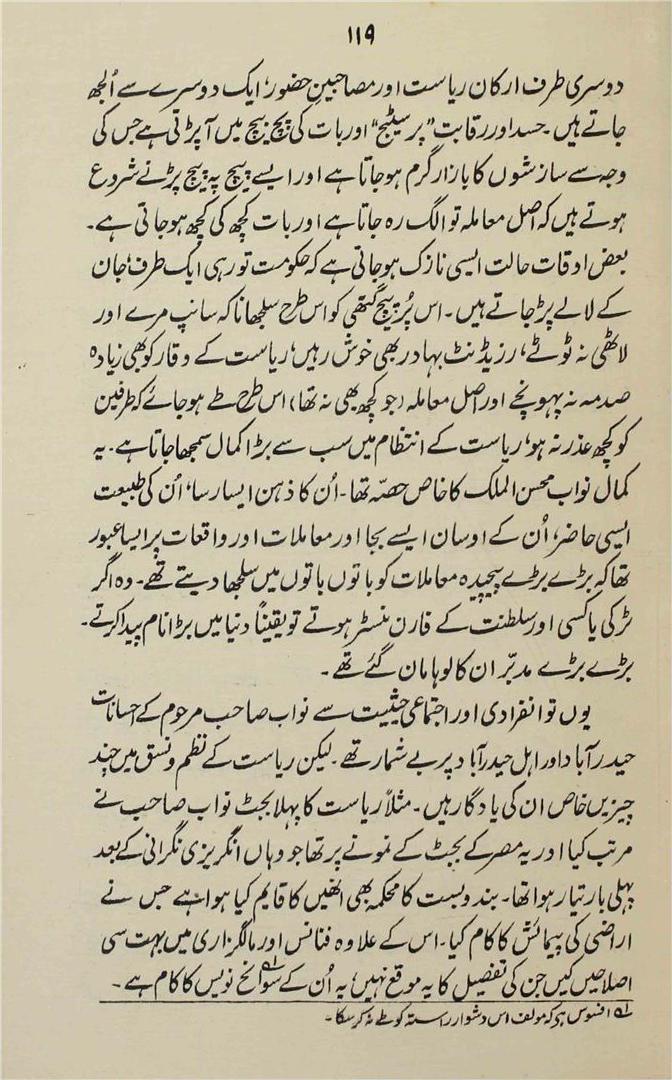 ۱۱۹
دوسری طرف ارکان ریاست اور مصاحبینِ حضور، ایک دوسرے سے اُلجھ
جاتے ہیں۔ حسد اور رقابت "پرسٹیج" اور بات کی پچ بیچ میں آپڑتی ہے جس کی
وجہ سے سازشوں کا بازار گرم ہوجاتا ہے اور ایسے پیچ پہ پیچ پڑنے شروع
ہوتے ہیں کہ اصل معاملہ تو الگ رہ جاتا ہے اور بات کچھ کی کچھ ہوجاتی ہے۔
بعض اوقات حالت ایسی نازک ہوجاتی ہے کہ حکومت تو رہی ایک طرف، جان
کے لالے پڑجاتے ہیں۔ اس پُرپیچ گتھی کو اس طرح سلجھانا کہ سانپ مرے اور
لاٹھی نہ ٹوٹے، رزیڈنٹ بہادر بھی خوش رہیں، ریاست کے وقار کو بھی زیادہ
صدمہ نہ پہونچے اور اصل معاملہ (جو کچھ بھی نہ تھا) اس طرح طے ہوجائے کہ طرفین
کو کچھ عذر نہ ہو، ریاست کے انتظام میں سب سے بڑا کمال سمجھا جاتا ہے۔ یہ
کمال نواب محسن الملک کا خاص حصّہ تھا۔ اُن کا ذہن ایسا رسا، اُن کی طبیعت
ایسی حاضر، اُن کے اوسان ایسے بجا اور معاملات اور واقعات پر ایسا عبور
تھا کہ بڑے بڑے پیچیدہ معاملات کو باتوں باتوں میں سلجھا دیتے تھے۔ وہ اگر
ٹرکی یا کسی اور سلطنت کے فارن منسٹر ہوتے تو یقیناً دنیا میں بڑا نام پیدا کرتے۔
بڑے بڑے مدبّر ان کا لوہا مان گئے تھے۔
یوں تو انفرادی اور اجتماعی حیثیت سے نواب صاحب مرحوم کے احسانات
حیدرآباد اور اہل حیدرآباد پر بے شمار تھے۔ لیکن ریاست کے نظم و نسق میں چند
چیزیں خاص ان کی یادگار ہیں۔ مثلاً ریاست کا پہلا بجٹ نواب صاحب نے
مرتب کیا اور یہ مصر کے بجٹ کے نمونے پر تھا جو وہاں انگریزی نگرانی کے بعد
پہلی بار تیار ہوا تھا۔ بندوبست کا محکمہ بھی انھیں کا قایم کیا ہوا ہے جس نے
اراضی کی پیمائش کا کام کیا۔ اس کے علاوہ فنانس اور مالگزاری میں بہت سی
اصلاحیں کیں جن کی تفصیل کا یہ موقع نہیں، یہ اُن کے سوانح نویس کا کام ہے۔
افسوس ہے کہ مولف اس دشوار راستہ کو طے نہ کرسکا۔